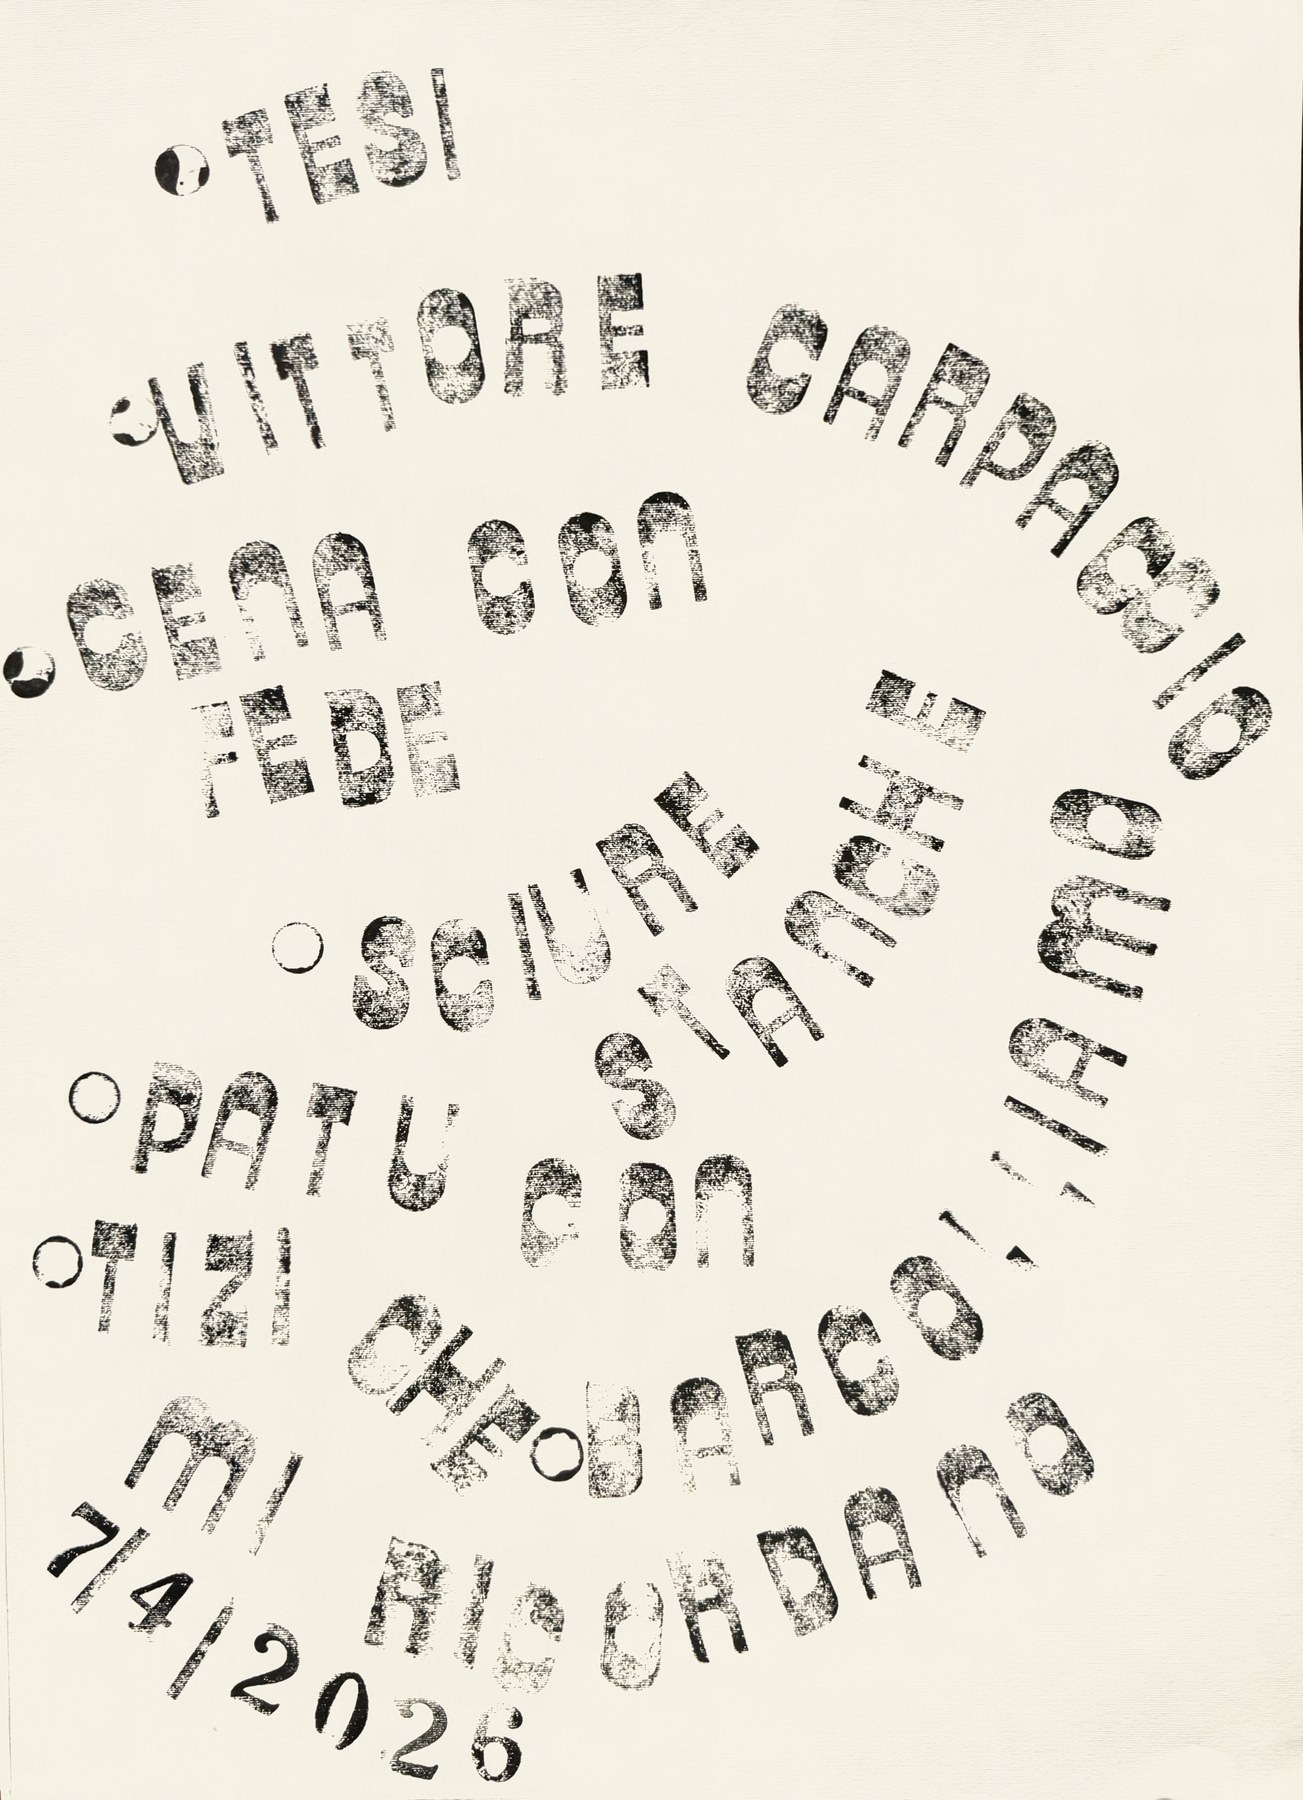 TESI
VITTORE CARPACCIO
CENA CON
FEDE
SCIURE
STANCHE
PATU CON
TIZI CHE
BARCOLLIAMO
MI RICORDANO
7/4/2026